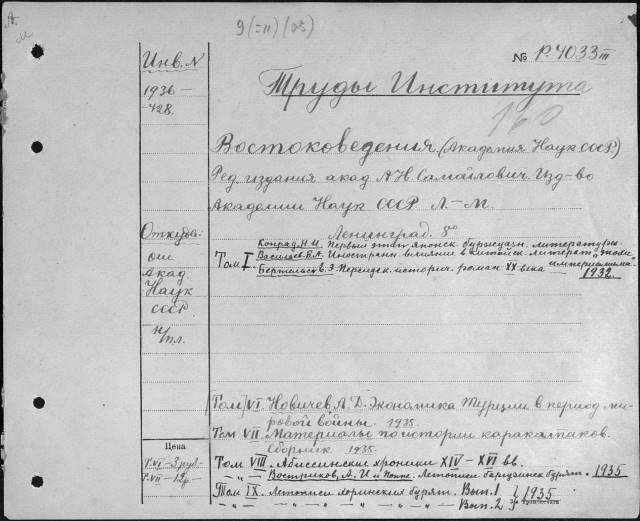 9(=11)(05)
№ Р.4033 III
Инв. N
1936 –
428.
Труды Института
160
Востоковедения (Академия Наук СССР.)
Ред. издания акад А.Н. Самойлович. Изд-во
Академии Наук СССР. Л.–М.
Ленинград. 8º
Откуда:
от
Акад.
Наук
СССР
н/пл.
Том I. Конрад. Н.И. Первый этап японск. буржуазн. литературы.
Васильев Б.А. Иностранн. влияние в китайск. литерат. эпохи империализма.
Бертельс Е. Э. Персидск. историч. роман XX века – 1932.
Том VI. Новичев, А. Д. Экономика Турции в период ми-
ровой войны. 1935
Том VII. Материалы по истории каракалпаков.
Сборник 1935.
Цена
Т. VI – 3 руб.
Т. VII – 12 р.
Том VIII. Абиссинские хроники XIV – XVI вв.
„ – „ Востриков, А. И и Поппе. Летопись баргузинск бурят. 1935
Том IX. Летописи хоринских бурят. Вып. 1 } 1935
„ „ „ „ „ Вып. 2